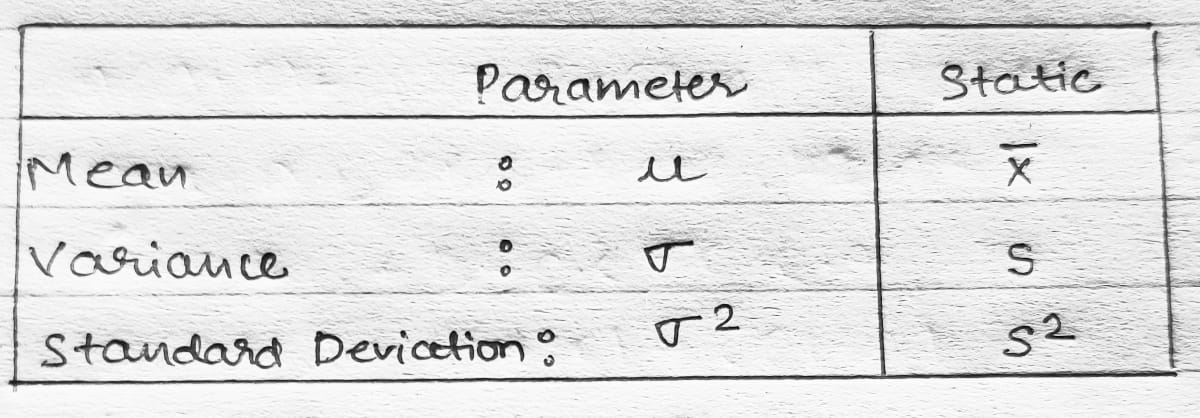 Parameter Static
Mean : μ x̅
Variance : σ S
Standard Deviation : σ² S²